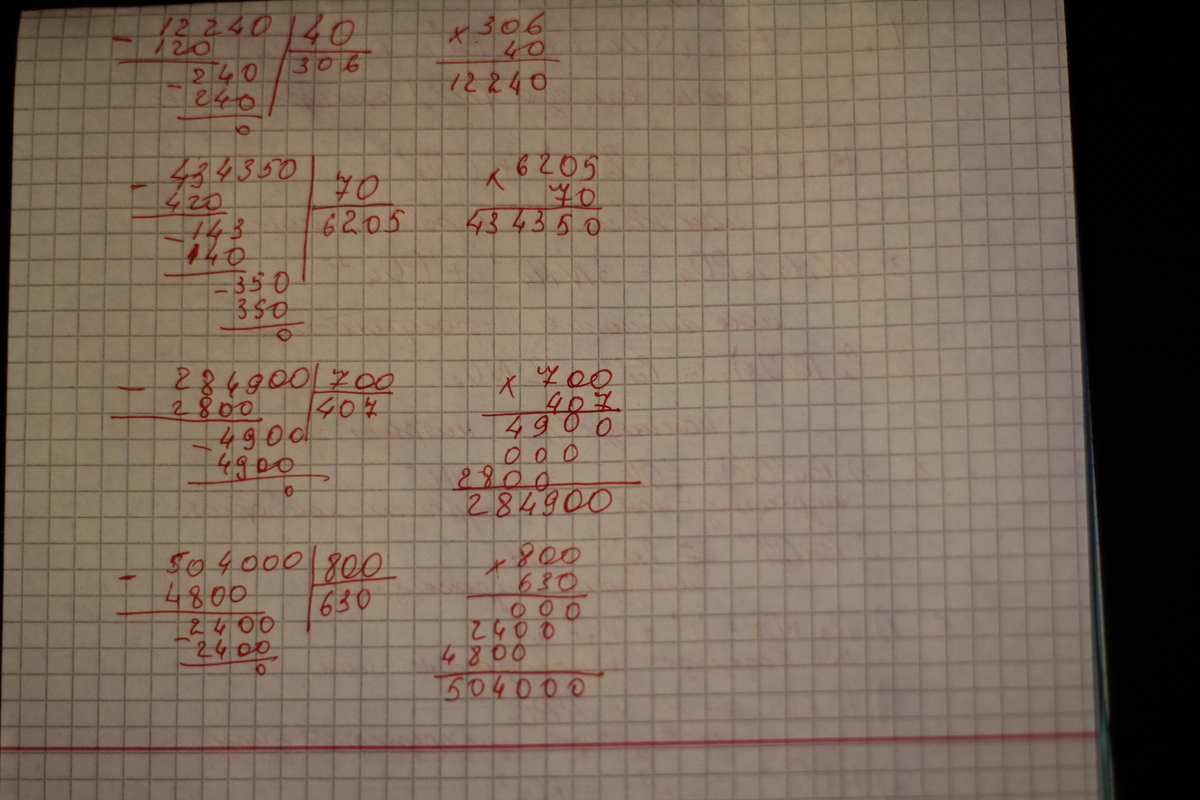 - 12240 | 40 × 306
120 306 40
- 240 12240
240
0
- 434350 | 70 × 6205
420 6205 70
- 143 434350
140
- 350
350
0
- 284900 | 700 × 700
2800 407 407
- 4900 4900
4900 000
0 2800
284900
- 504000 | 800 × 800
4800 630 630
- 2400 000
2400 2400
0 4800
504000